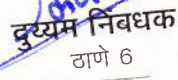 दुय्यम निबंधक
ठाणे 6